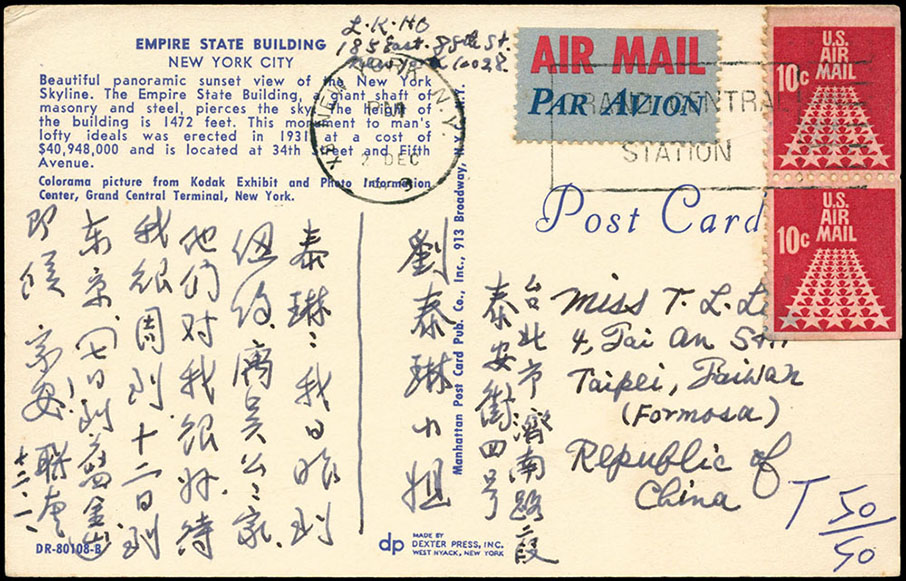 EMPIRE STATE BUILDING
NEW YORK CITY
Beautiful panoramic sunset view of the New York
Skyline. The Empire State Building, a giant shaft of
masonry and steel, pierces the sky. The height of
the building is 1472 feet. This monument to man's
lofty ideals was erected in 1931 at a cost of
$40,948,000 and is located at 34th Street and Fifth
Avenue.
Colorama picture from Kodak Exhibit and Photo Information
Center, Grand Central Terminal, New York.
L.K.HO
185 East. 85th St.
New York 10028
N.Y.
PM
2 DEC
AIR MAIL
PAR AVION
GRAND CENTRAL
STATION
U.S.
AIR
MAIL
10c
U.S.
AIR
MAIL
10c
Post Card
Manhattan Post Card Pub. Co., Inc., 913 Broadway, N.Y. N.Y.
Miss T. L. L
4, Tai An St
Taipei, Taiwan
(Formosa)
Republic of
China
T 50/50
台北市濟南路二段
泰安街四号
劉泰琳小姐
泰琳:我日昨到
纽约,寓吴公公家,
他们对我很好,待
我很周到,十二日到
东京,(七日到旧金山)
即候
联奎
十二.一
DR-80108-B
dp
MADE BY
DEXTER PRESS, INC.
WEST NYACK, NEW YORK